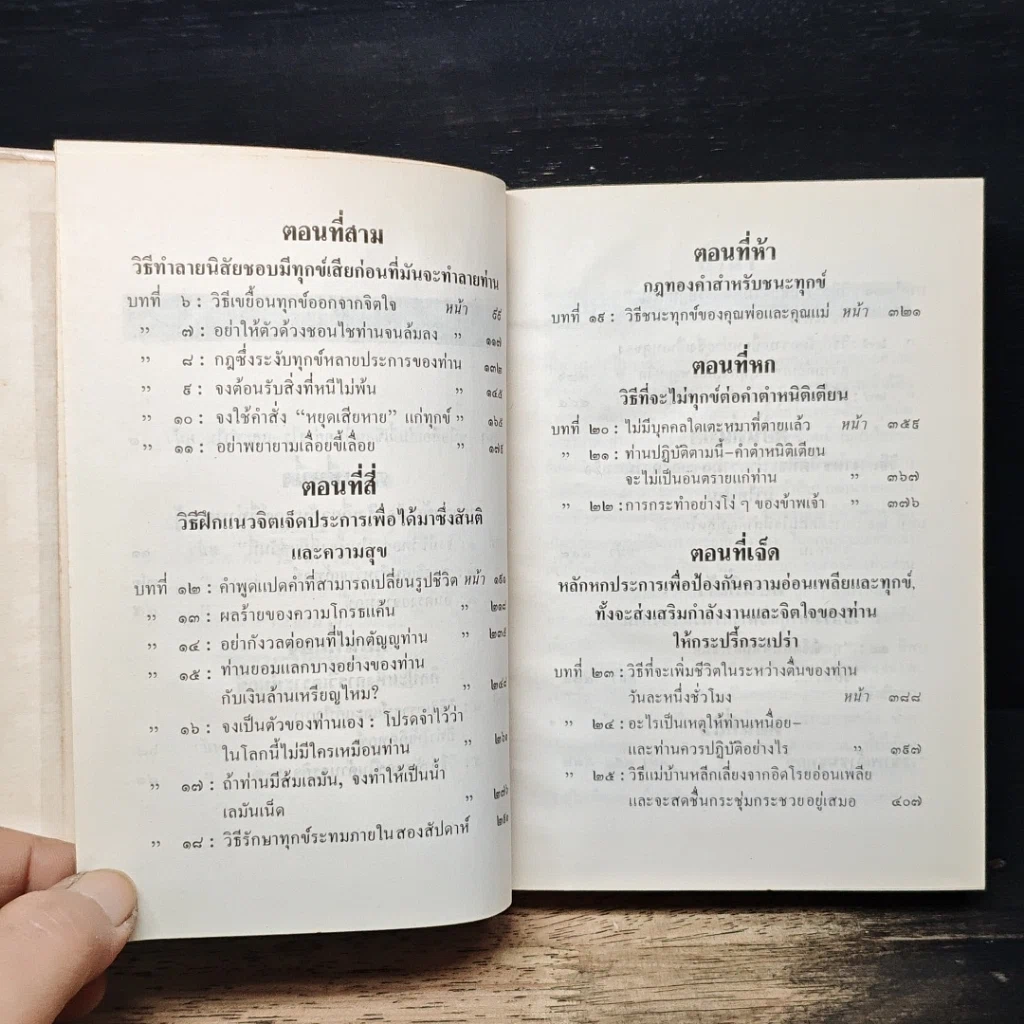 ตอนที่สาม
วิธีทำลายนิสัยชอบมีทุกข์เสียก่อนที่มันจะทำลายท่าน
บทที่ ๖ : วิธีเขยื้อนทุกข์ออกจากจิตใจ หน้า ๙๙
” ๗ : อย่าให้ตัวด้วงชอนไชท่านจนล้มลง ” ๑๑๗
” ๘ : กฎซึ่งระงับทุกข์หลายประการของท่าน ๑๓๒
” ๙ : จงต้อนรับสิ่งที่หนีไม่พ้น ” ๑๔๕
” ๑๐ : จงใช้คำสั่ง “หยุดเสียหาย” แก่ทุกข์ ” ๑๖๕
” ๑๑ : อย่าพยายามเลื่อยขี้เลื่อย ” ๑๗๙
ตอนที่สี่
วิธีฝึกแนวจิตเจ็ดประการเพื่อได้มาซึ่งสันติ
และความสุข
บทที่ ๑๒ : คำพูดแปดคำที่สามารถเปลี่ยนรูปชีวิต หน้า ๑๙๑
” ๑๓ : ผลร้ายของความโกรธแค้น ” ๒๑๘
” ๑๔ : อย่ากังวลต่อคนที่ไม่กตัญญูท่าน ” ๒๓๕
” ๑๕ : ท่านยอมแลกบางอย่างของท่าน
กับเงินล้านเหรียญไหม? ” ๒๔๘
” ๑๖ : จงเป็นตัวของท่านเอง : โปรดจำไว้ว่า
ในโลกนี้ไม่มีใครเหมือนท่าน ” ๒๖๑
” ๑๗ : ถ้าท่านมีส้มเลมัน, จงทำให้เป็นน้ำ
เลมันเน็ด ” ๒๗๖
” ๑๘ : วิธีรักษาทุกข์ระทมภายในสองสัปดาห์
ตอนที่ห้า
กฎทองคำสำหรับชนะทุกข์
บทที่ ๑๙ : วิธีชนะทุกข์ของคุณพ่อและคุณแม่ หน้า ๓๒๑
ตอนที่หก
วิธีที่จะไม่ทุกข์ต่อคำตำหนิติเตียน
บทที่ ๒๐ : ไม่มีบุคคลใดเตะหมาที่ตายแล้ว หน้า ๓๕๙
” ๒๑ : ท่านปฏิบัติตามนี้–คำตำหนิติเตียน
จะไม่เป็นอันตรายแก่ท่าน ” ๓๖๗
” ๒๒ : การกระทำอย่างโง่ ๆ ของข้าพเจ้า ” ๓๗๖
ตอนที่เจ็ด
หลักหกประการเพื่อป้องกันความอ่อนเพลียและทุกข์,
ทั้งจะส่งเสริมกำลังงานและจิตใจของท่าน
ให้กระปรี้กระเปร่า
บทที่ ๒๓ : วิธีที่จะเพิ่มชีวิตในระหว่างตื่นของท่าน
วันละหนึ่งชั่วโมง หน้า ๓๘๘
” ๒๔ : อะไรเป็นเหตุให้ท่านเหนื่อย–
และท่านควรปฏิบัติอย่างไร ” ๓๙๗
” ๒๕ : วิธีแม่บ้านหลีกเลี่ยงจากอิดโรยอ่อนเพลีย
และจะสดชื่นกระชุ่มกระชวยอยู่เสมอ ๔๐๗